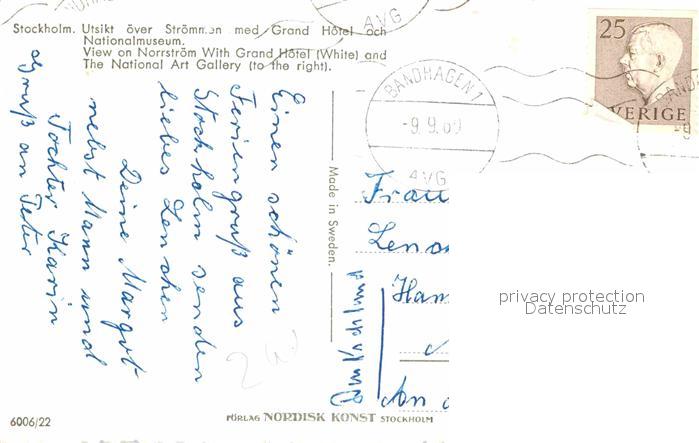 Stockholm. Utsikt över Strömmen med Grand Hôtel och
Nationalmuseum.
View on Norrström With Grand Hôtel (White) and
The National Art Gallery (to the right).
Einen schönen
Feriengruß aus
Stockholm senden
liebes Lenchen
Deine Margot
nebst Mann und
Tochter Karin
Gruß an Peter
Made in Sweden.
BANDHAGEN 1
-9.9.60
AVG
AVG
25
SVERIGE
Frau
Leno
Ham
An
privacy protection
Datenschutz
6006/22
FÖRLAG NORDISK KONST STOCKHOLM